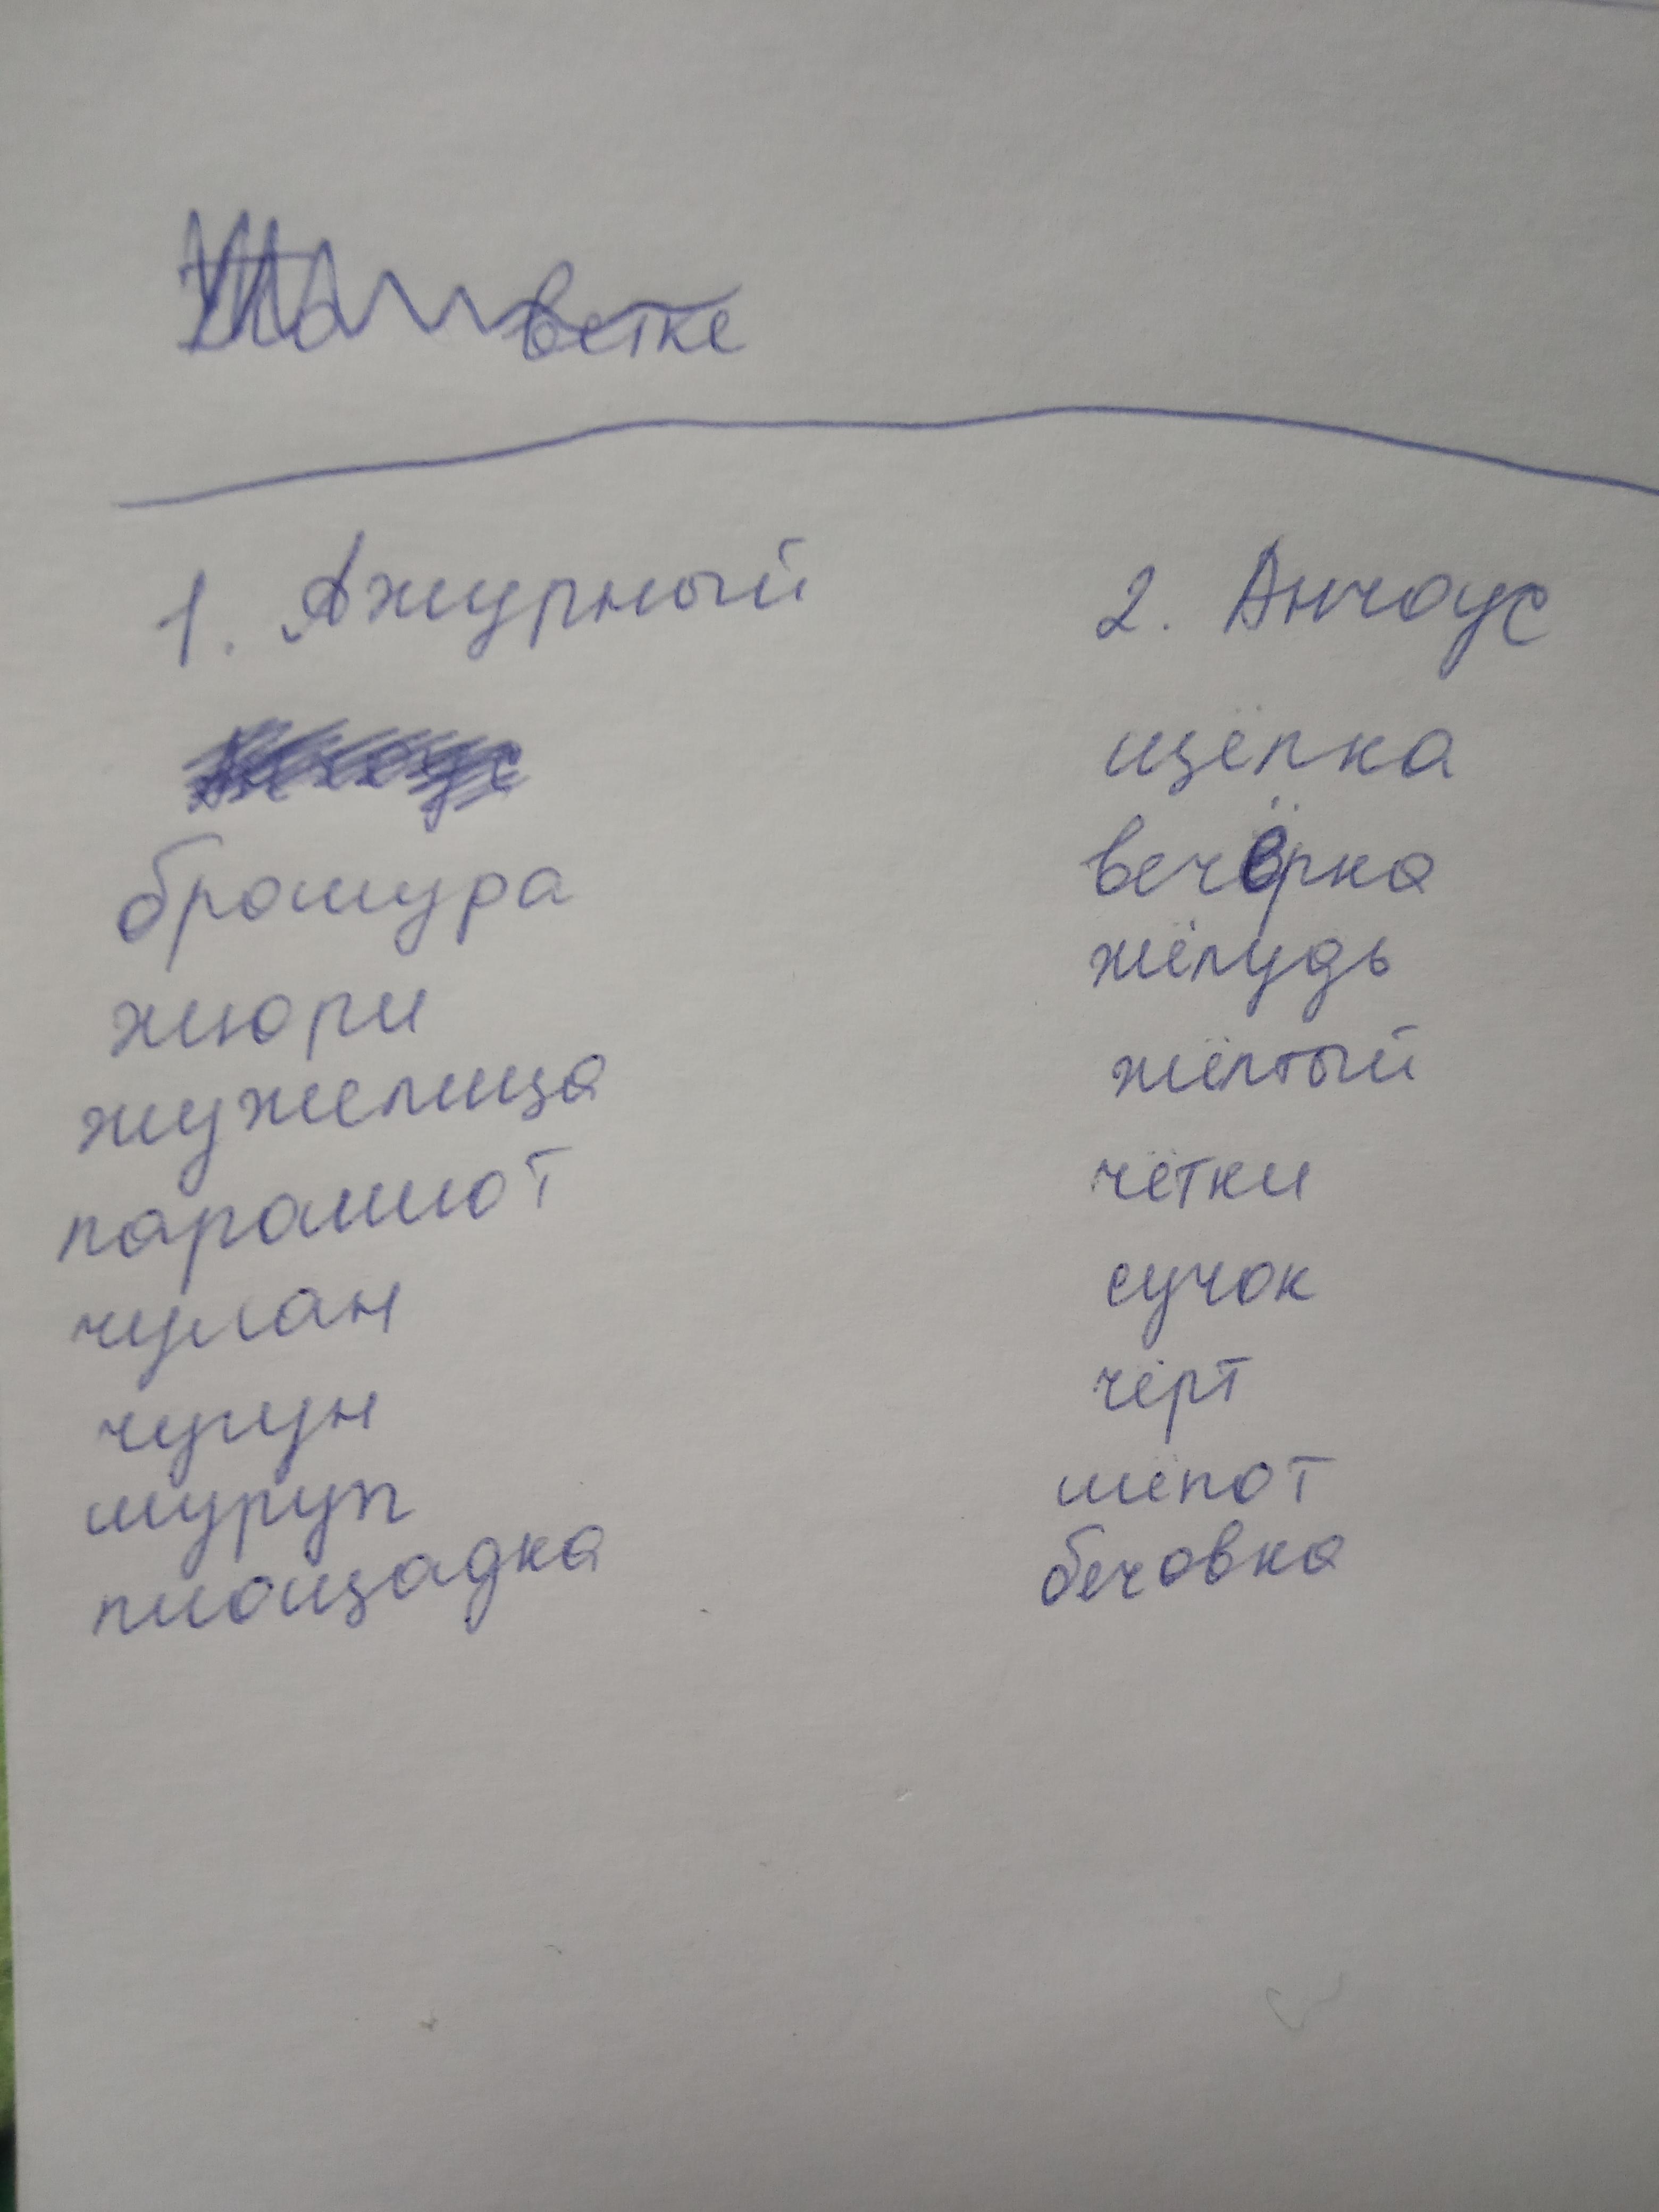 ветке
1. Ажурный
брошура
жюри
жужелица
парашют
чулан
чугун
шуруп
площадка
2. Анчоус
щёлка
вечёрка
жёлудь
жёлтый
чётки
сучок
чёрт
шёпот
бечовка